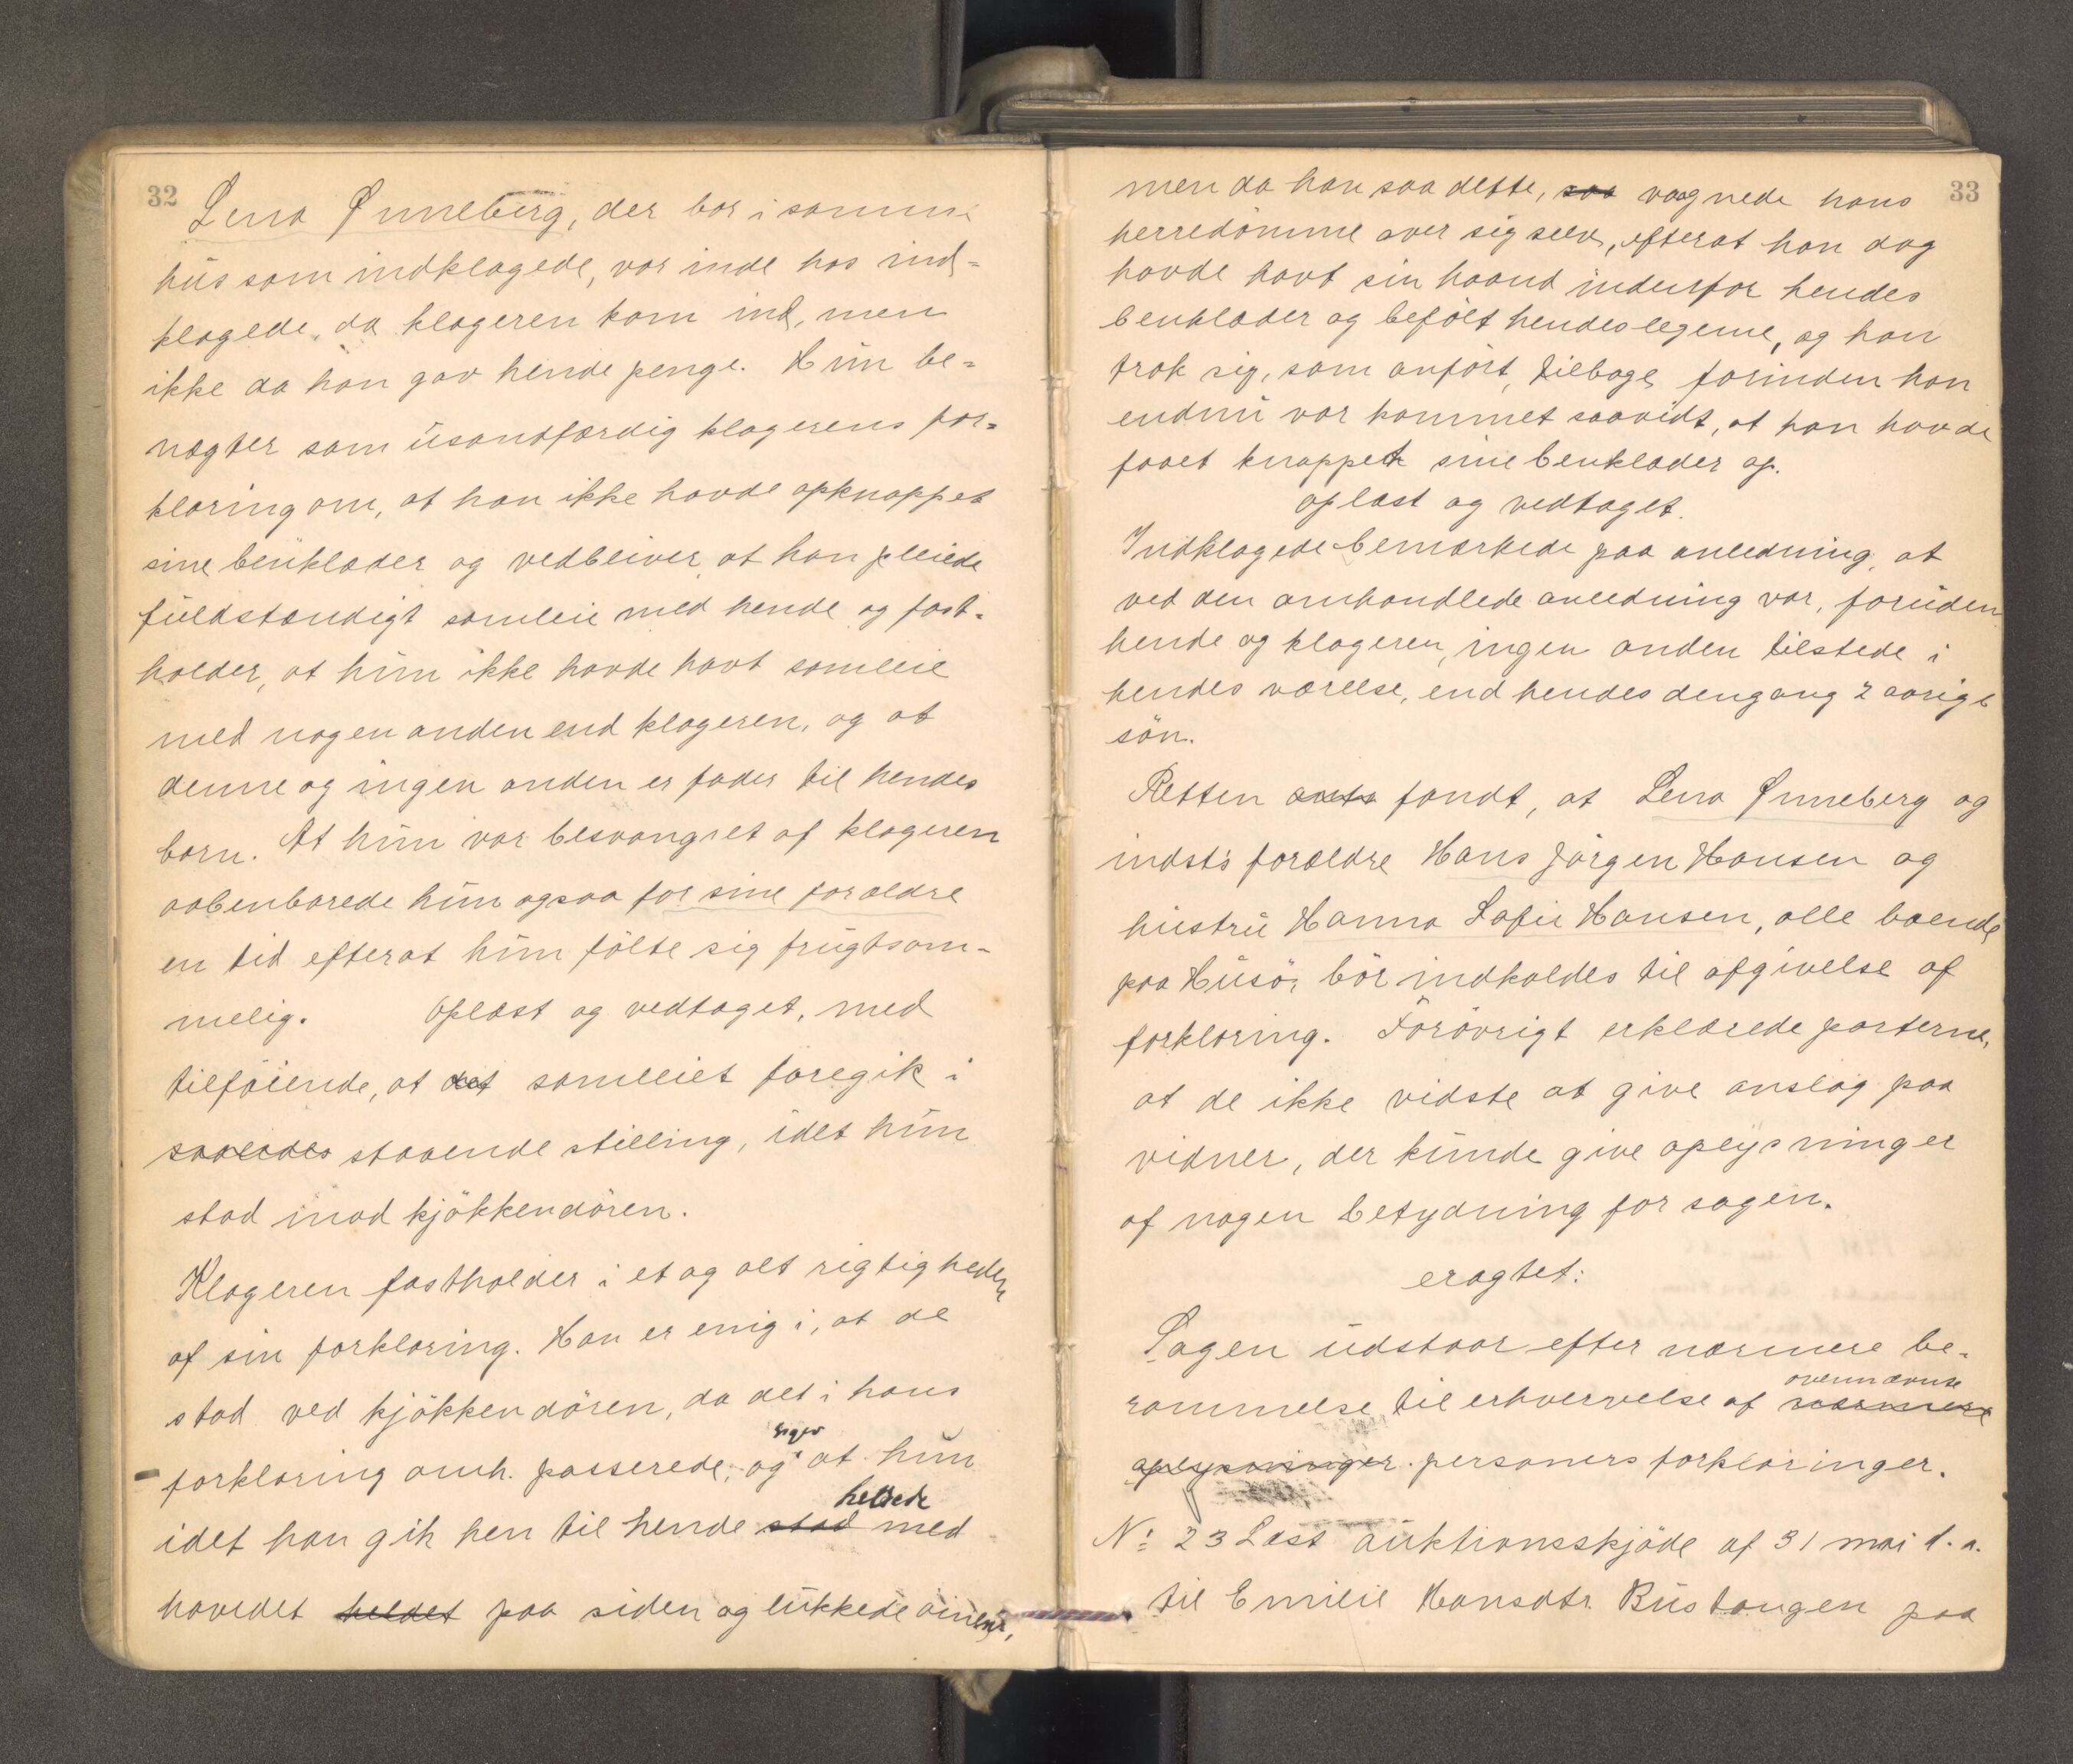 32
Lena Ønneberg, der bor i samme
hus som indklagede, var inde hos ind-
klagede, da klageren kom ind, men
ikke da han gav hende penge. Hun be-
nægter som usandfærdig klagerens for-
klaring om, at han ikke havde opknappet
sine benklæder og vedbliver, at han pleiede
fuldstændigt samleie med hende og fast-
holder, at hun ikke havde havt samleie
med nogen anden end klageren, og at
denne og ingen anden er fader til hendes
barn. At hun var besvangret af klageren
aabenbarede hun ogsaa for sine forældre
en tid efterat hun følte sig frugtsom-
melig. Oplæst og vedtaget, med
tilføiende, at det samleiet foregik i
saaledes staaende stilling, idet hun
stod mod kjøkkendøren.
Klageren fastholder i et og alt rigtigheden
af sin forklaring. Han er enig i, at de
stod ved kjøkkendøren, da det i hans
forklaring omh. passerede, og siger at hun
idet han gik hen til hende stod heldede med
hovedet heldet paa siden og lukkede øinene,
33
men da han saa dette, saa vaagnede hans
herredømme over sig selv, efterat han dog
havde havt sin haand indenfor hendes
benklæder og befølt hendes legeme, og han
trak sig, som anført, tilbage forinden han
endnu var kommet saavidt, at han havde
faaet knappet sine benklæder op.
oplæst og vedtaget.
Indklagede bemærkede paa anledning, at
ved den omhandlede anledning var, foruden
hende og klageren, ingen anden tilstede i
hendes værelse, end hendes dengang 2 aarige
søn.
Retten fandt, at Lena Ønneberg og
indst's forældre Hans Jørgen Hansen og
hustru Hanna Sofie Hansen, alle boende
paa Husø, bør indkaldes til afgivelse af
forklaring. Forøvrigt erklærede parterne,
at de ikke vidste at give anslag paa
vidner, der kunde give oplysninger
af nogen betydning for sagen.
eragtet:
Sagen udstaar efter nærmere be-
rammelse til erhvervelse af nærmere ovennævnte
oplysninger personers forklaringer.
No: 23 Læst auktionsskjøde af 31 mai d. a.
til Emilie Hansdtr. Bustangen paa